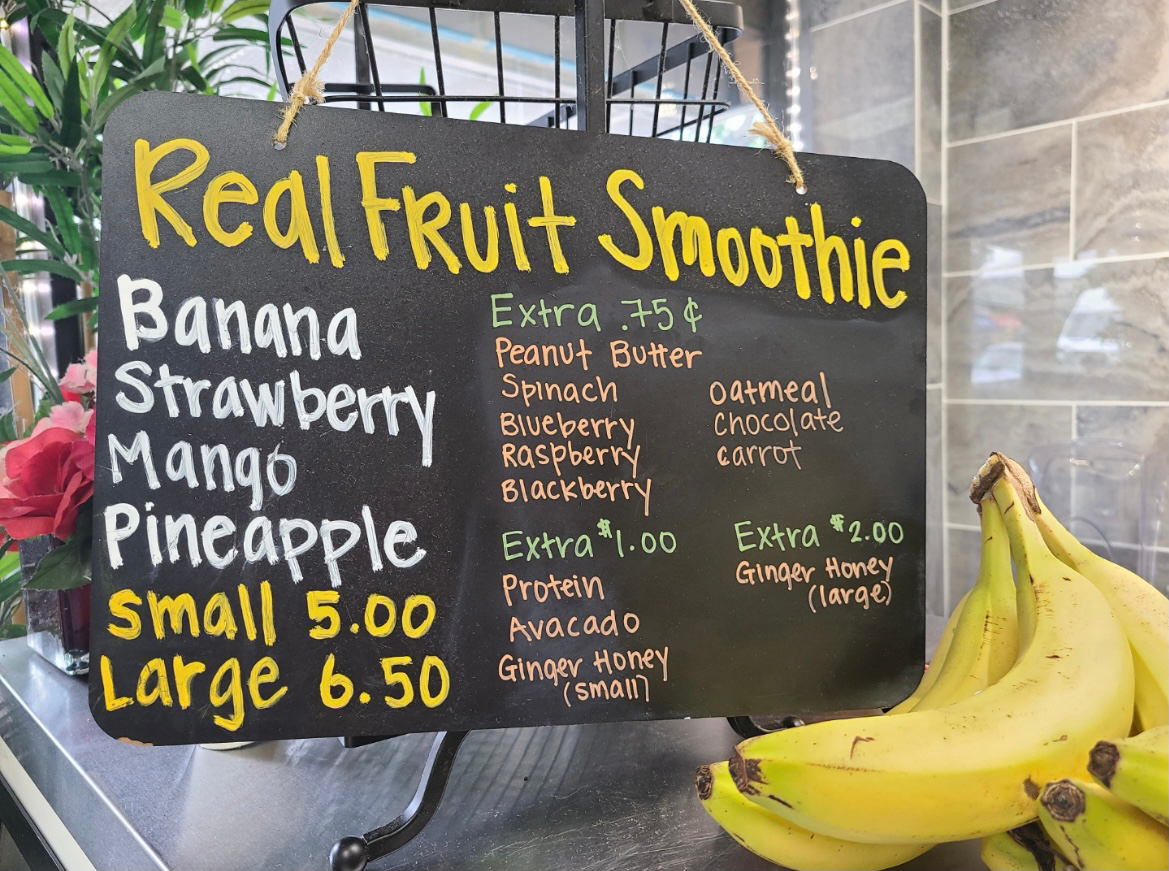 Real Fruit Smoothie
Banana
Strawberry
Mango
Pineapple
Small 5.00
Large 6.50
Extra .75¢
Peanut Butter
Spinach
Blueberry
Raspberry
Blackberry
oatmeal
chocolate
carrot
Extra $1.00
Protein
Avacado
Ginger Honey
(small)
Extra $2.00
Ginger Honey
(large)